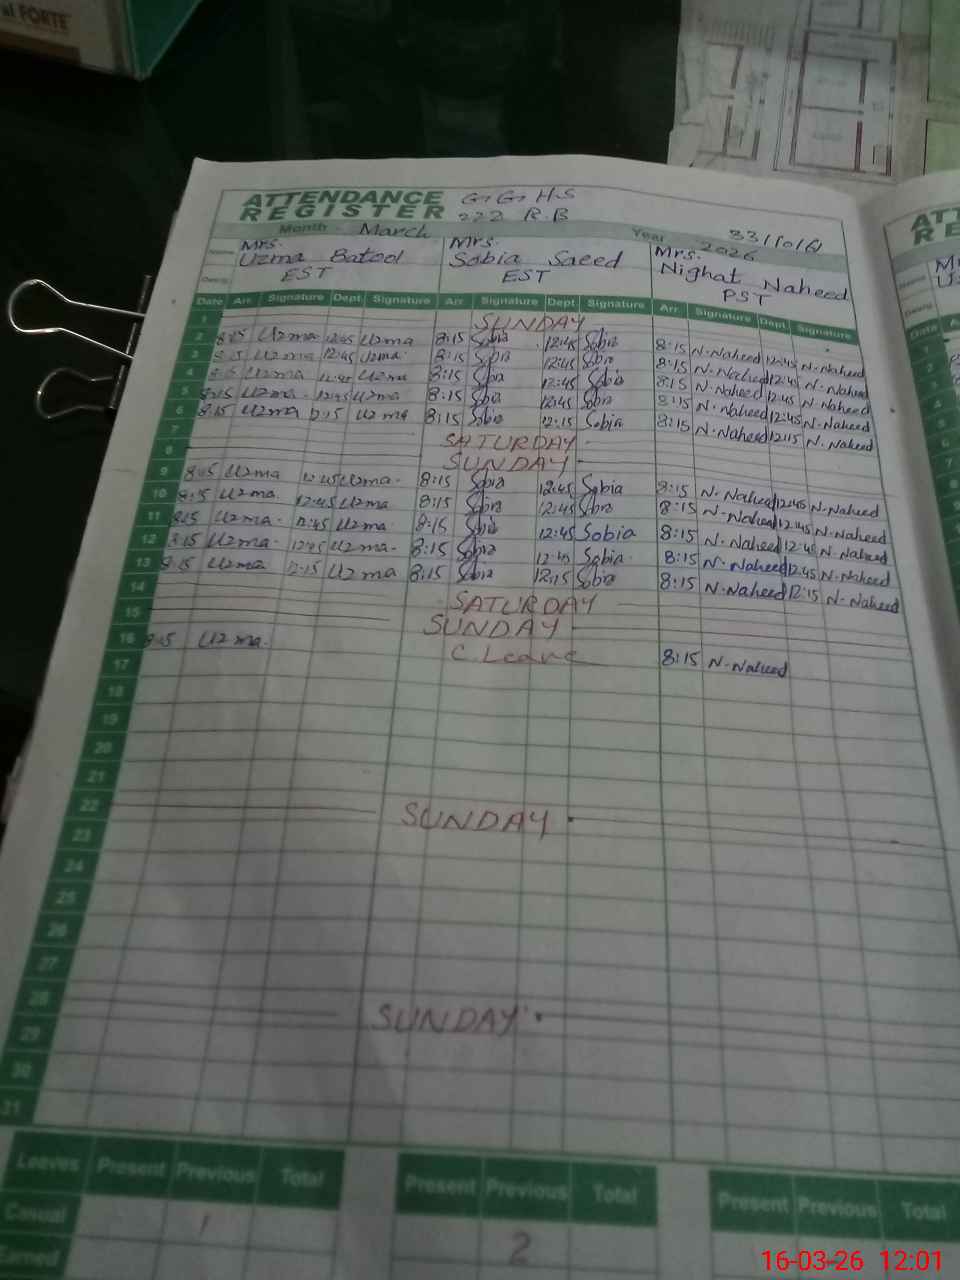 al FORTE
ATTENDANCE REGISTER G.G.H.S
222 R.B
Month March Year 2026
Mrs. Uzma Batool EST
Mrs. Sobia Saeed EST
Mrs. Nighat Naheed PST
Date Arr. Signature Dept. Signature Arr. Signature Dept. Signature Arr. Signature Dept. Signature
1 SUNDAY
2 8:15 Uzma 12:45 Uzma 8:15 Sobia 12:45 Sobia 8:15 N.Naheed 12:45 N.Naheed
3 8:15 Uzma 12:45 Uzma 8:15 Sobia 12:45 Sobia 8:15 N.Naheed 12:45 N.Naheed
4 8:15 Uzma 12:45 Uzma 8:15 Sobia 12:45 Sobia 8:15 N.Naheed 12:45 N.Naheed
5 8:15 Uzma 12:45 Uzma 8:15 Sobia 12:45 Sobia 8:15 N.Naheed 12:45 N.Naheed
6 8:15 Uzma 12:15 Uzma 8:15 Sobia 12:15 Sobia 8:15 N.Naheed 12:15 N.Naheed
7 SATURDAY
8 SUNDAY
9 8:15 Uzma 12:45 Uzma 8:15 Sobia 12:45 Sobia 8:15 N.Naheed 12:45 N.Naheed
10 8:15 Uzma 12:45 Uzma 8:15 Sobia 12:45 Sobia 8:15 N.Naheed 12:45 N.Naheed
11 8:15 Uzma 12:45 Uzma 8:15 Sobia 12:45 Sobia 8:15 N.Naheed 12:45 N.Naheed
12 8:15 Uzma 12:45 Uzma 8:15 Sobia 12:45 Sobia 8:15 N.Naheed 12:45 N.Naheed
13 8:15 Uzma 12:15 Uzma 8:15 Sobia 12:15 Sobia 8:15 N.Naheed 12:15 N.Naheed
14 SATURDAY
15 SUNDAY
16 8:15 Uzma C.Leave 8:15 N.Naheed
17
18
19
20
21
22 SUNDAY
23
24
25
26
27
28
29 SUNDAY
30
31
Leaves Present Previous Total Present Previous Total Present Previous Total
Casual 1 2
Earned
16-03-26 12:01